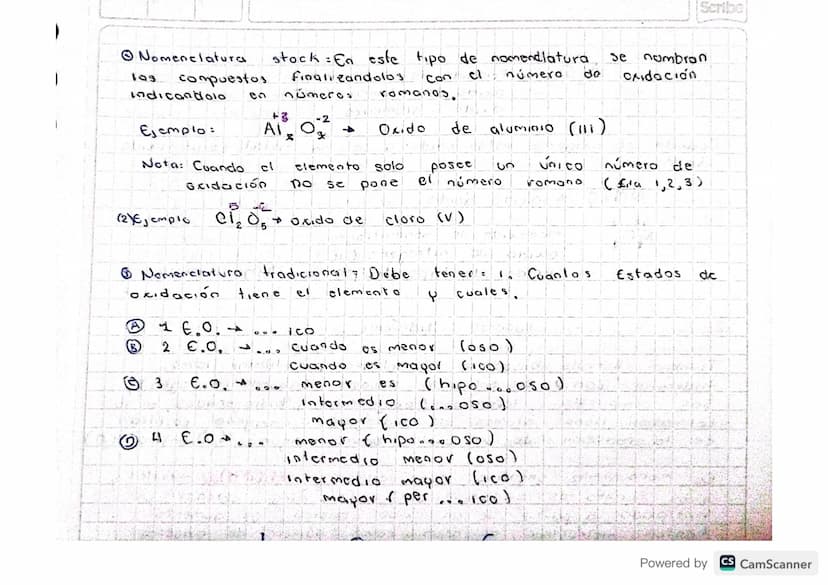 Scribe
⊙ Nomenclatura stock: En este tipo de nomendlatura se nombran
los compuestos finalizandolos con el número de oxidación
indicandolo en números romanos.
+3 -2
Ejemplo: Al₂ O₃ → Oxido de aluminio (III)
Nota: Cuando el elemento solo posee un único número de
oxidación no se pone el número romano (fila 1,2,3)
5 -2
(2) Ejemplo Cl₂ O₅ → oxido de cloro (V)
Nomenclatura tradicional: Debe tener: 1. Cuantos Estados de
oxidación tiene el elemento y cuales.
Ⓐ 1 E.O. → ... ico
Ⓑ 2 E.O. → ... cuando es menor (oso)
cuando es mayor (ico)
Ⓒ 3 E.O. → ... menor es (hipo...oso)
intermedio (...oso)
mayor (ico)
Ⓓ 4 E.O → ... menor (hipo...oso)
intermedio menor (oso)
intermedio mayor (ico)
mayor (per ... ico)
Powered by CS CamScanner